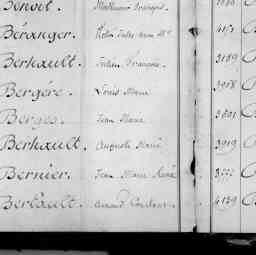 Benoit. Mathurin François
Béranger. Jules 4151
Berhault. Julien François 3189
Bergère. Louis Marie 3908
Berges. Jean Marie 3801
Berhault. Auguste Marie 3919
Bernier. Jean Marie René
Berbault. Constant 4139